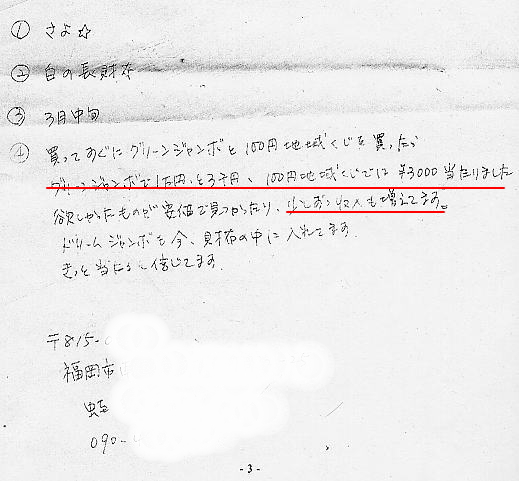 ① さよ☆
② 白の長財布
③ 3月中旬
④ 買ってすぐにグリーンジャンボと100円地域くじを買ったら
グリーンジャンボで1万円と3千円、100円地域くじでは¥3000当たりました
欲しかったものが安価で見つかったり、少しずつ収入も増えてます。
ドリームジャンボも今、財布の中に入れてます
きっと当たると信じてます
〒815-
福岡市
090-
-3-